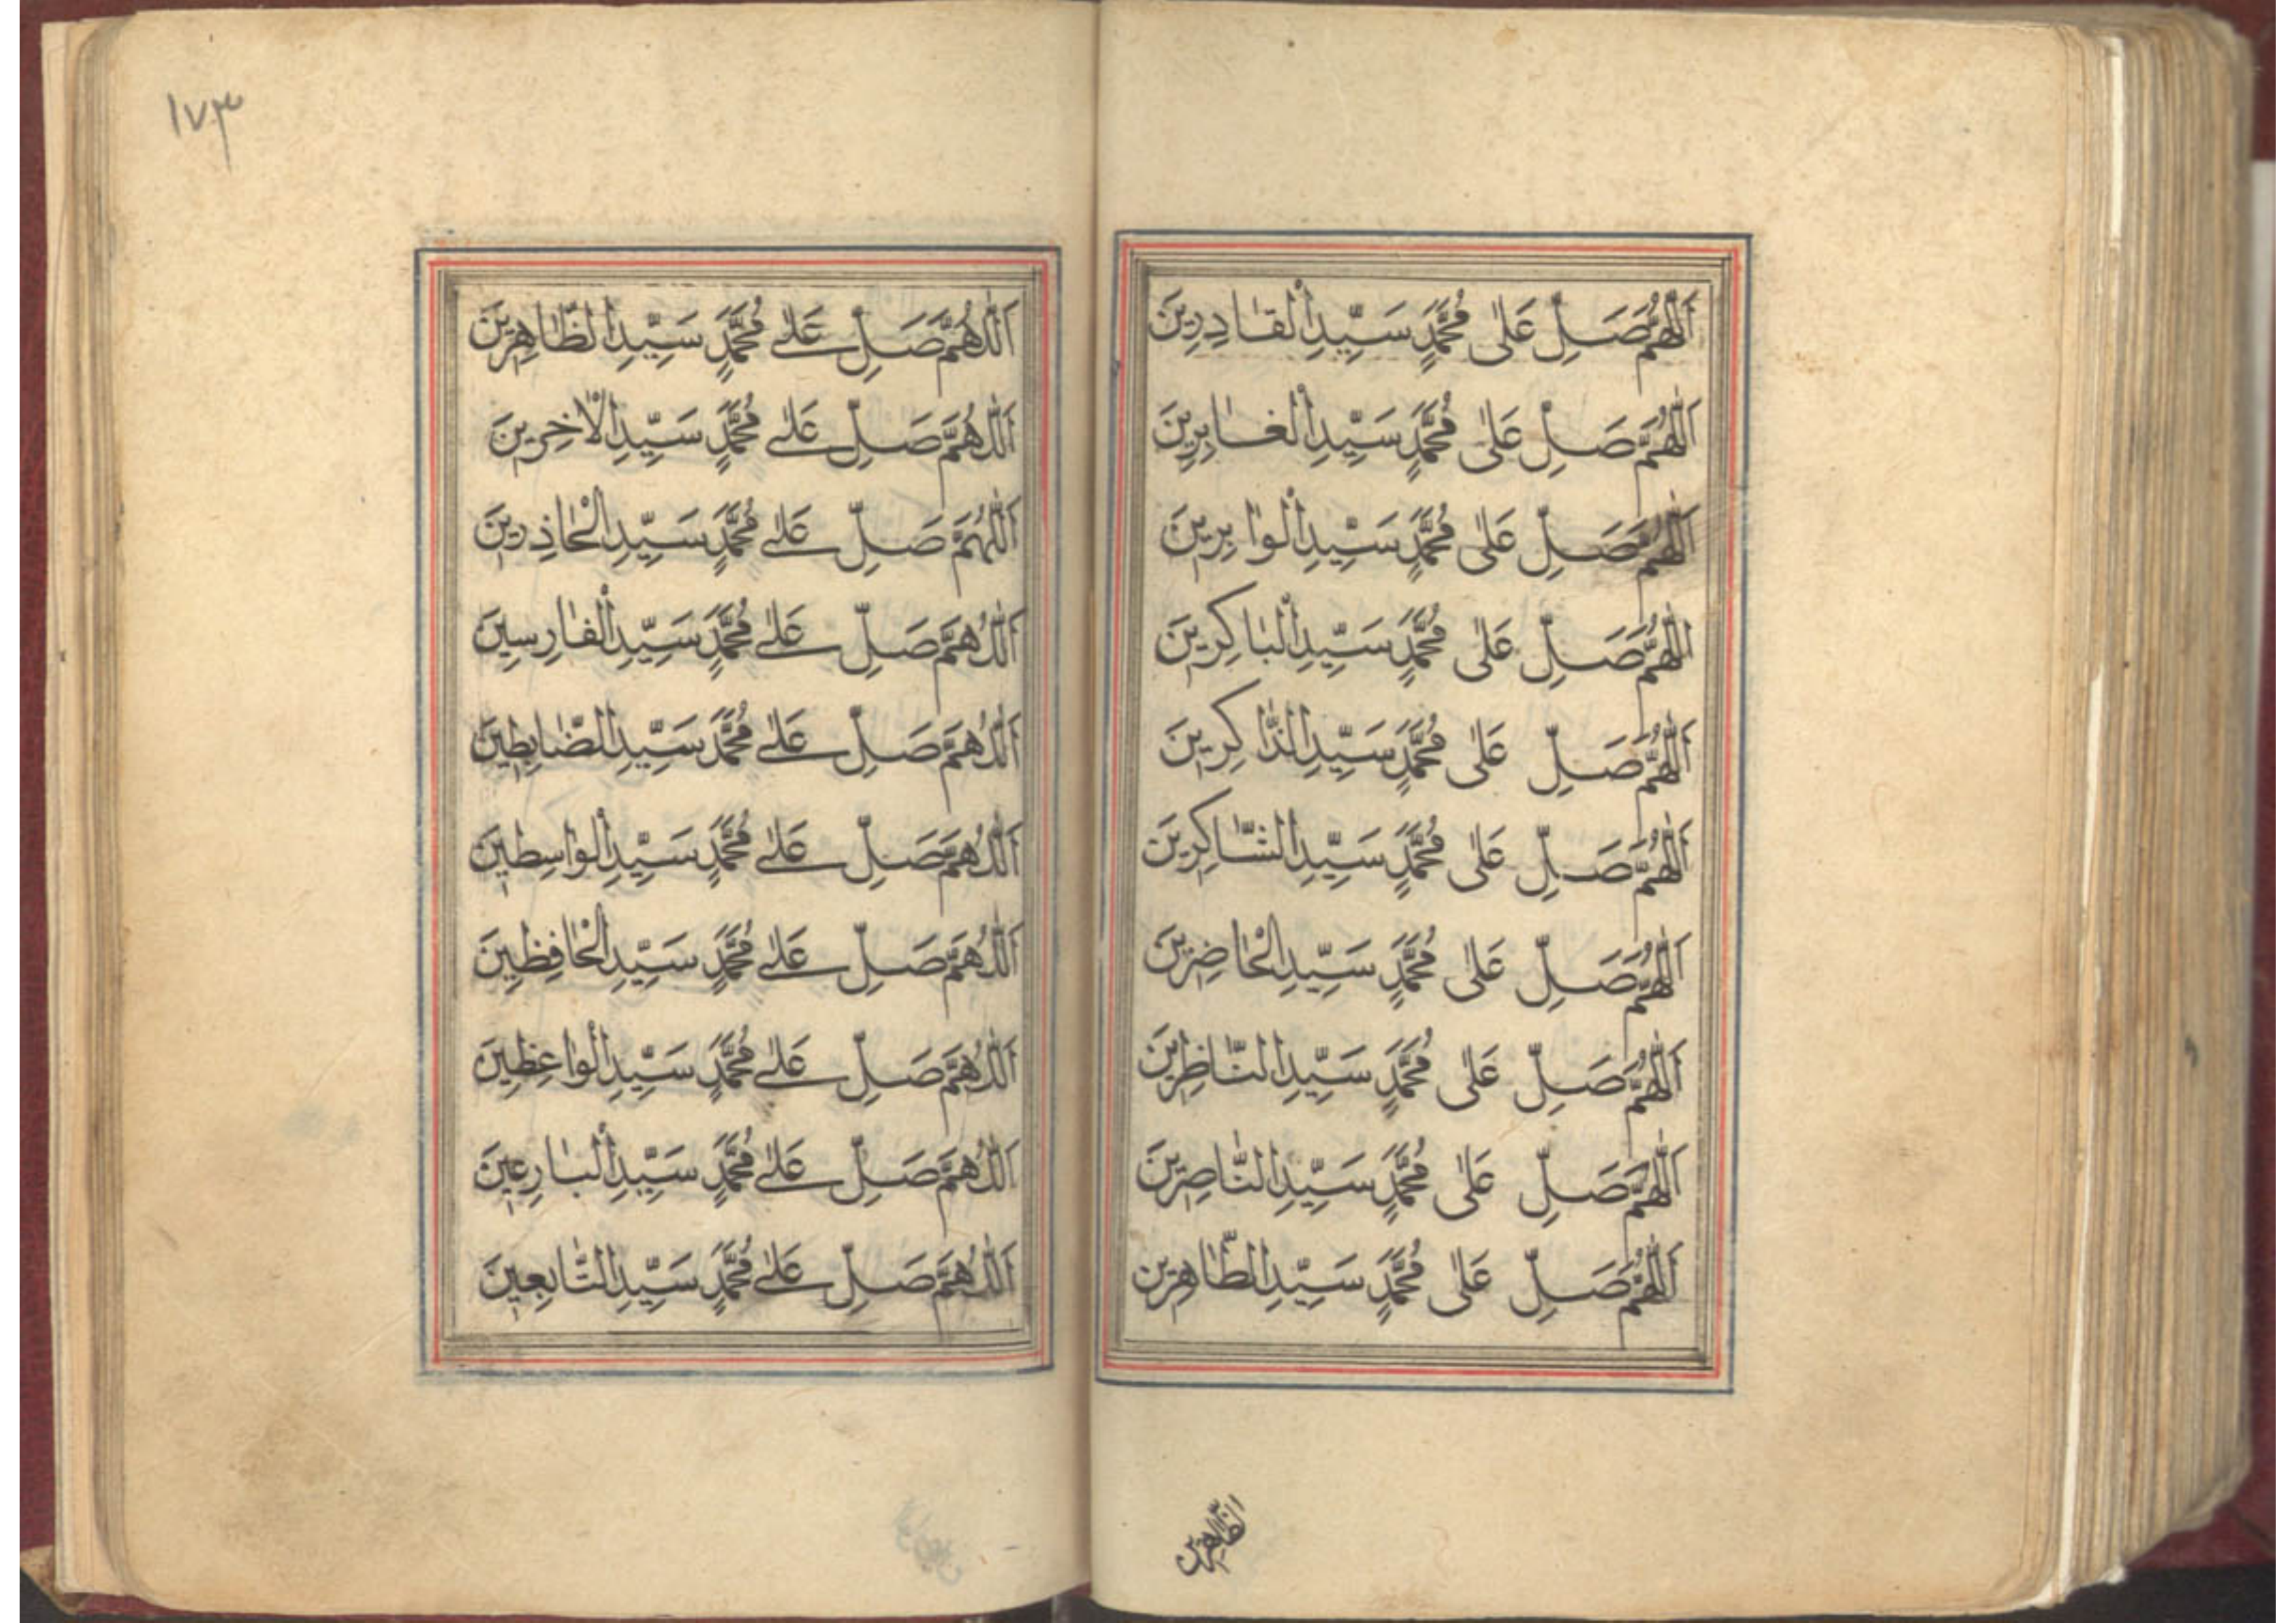 اَللّٰهُمَّ صَلِّ عَلٰى مُحَمَّدٍ سَيِّدِ الْقَادِرِينَ
اَللّٰهُمَّ صَلِّ عَلٰى مُحَمَّدٍ سَيِّدِ الْغَابِرِينَ
اَللّٰهُمَّ صَلِّ عَلٰى مُحَمَّدٍ سَيِّدِ الْوَابِرِينَ
اَللّٰهُمَّ صَلِّ عَلٰى مُحَمَّدٍ سَيِّدِ الْبَاكِرِينَ
اَللّٰهُمَّ صَلِّ عَلٰى مُحَمَّدٍ سَيِّدِ الذَّاكِرِينَ
اَللّٰهُمَّ صَلِّ عَلٰى مُحَمَّدٍ سَيِّدِ الشَّاكِرِينَ
اَللّٰهُمَّ صَلِّ عَلٰى مُحَمَّدٍ سَيِّدِ الْحَاضِرِينَ
اَللّٰهُمَّ صَلِّ عَلٰى مُحَمَّدٍ سَيِّدِ النَّاظِرِينَ
اَللّٰهُمَّ صَلِّ عَلٰى مُحَمَّدٍ سَيِّدِ النَّاصِرِينَ
اَللّٰهُمَّ صَلِّ عَلٰى مُحَمَّدٍ سَيِّدِ الطَّاهِرِينَ
الظَّاهِرِينَ
١٧٣
اَللّٰهُمَّ صَلِّ عَلٰى مُحَمَّدٍ سَيِّدِ الظَّاهِرِينَ
اَللّٰهُمَّ صَلِّ عَلٰى مُحَمَّدٍ سَيِّدِ الْاٰخِرِينَ
اَللّٰهُمَّ صَلِّ عَلٰى مُحَمَّدٍ سَيِّدِ الْحَاذِرِينَ
اَللّٰهُمَّ صَلِّ عَلٰى مُحَمَّدٍ سَيِّدِ الْفَارِسِينَ
اَللّٰهُمَّ صَلِّ عَلٰى مُحَمَّدٍ سَيِّدِ الضَّابِطِينَ
اَللّٰهُمَّ صَلِّ عَلٰى مُحَمَّدٍ سَيِّدِ الْوَاسِطِينَ
اَللّٰهُمَّ صَلِّ عَلٰى مُحَمَّدٍ سَيِّدِ الْحَافِظِينَ
اَللّٰهُمَّ صَلِّ عَلٰى مُحَمَّدٍ سَيِّدِ الْوَاعِظِينَ
اَللّٰهُمَّ صَلِّ عَلٰى مُحَمَّدٍ سَيِّدِ الْبَارِعِينَ
اَللّٰهُمَّ صَلِّ عَلٰى مُحَمَّدٍ سَيِّدِ التَّابِعِينَ